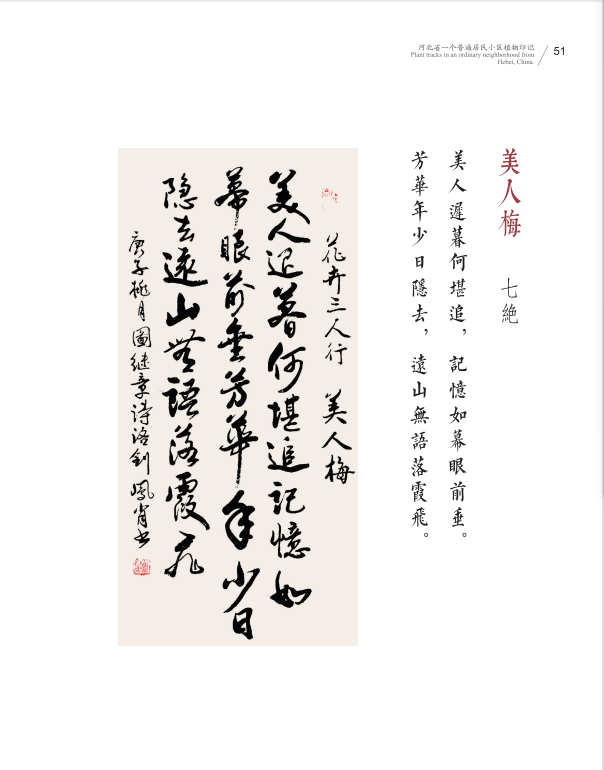 河北省一个普通居民小区植物印记
Plant tracks in an ordinary neighborhood from
Hebei, China.
51
美人梅 七絶
美人遲暮何堪追，記憶如幕眼前垂。
芳華年少日隱去，遠山無語落霞飛。
花卉三人行 美人梅
美人迟暮何堪追記憶如
幕眼前垂芳華年少日
隐去遠山無語落霞飛
庚子桃月圖继章诗洛釗鳳肖书